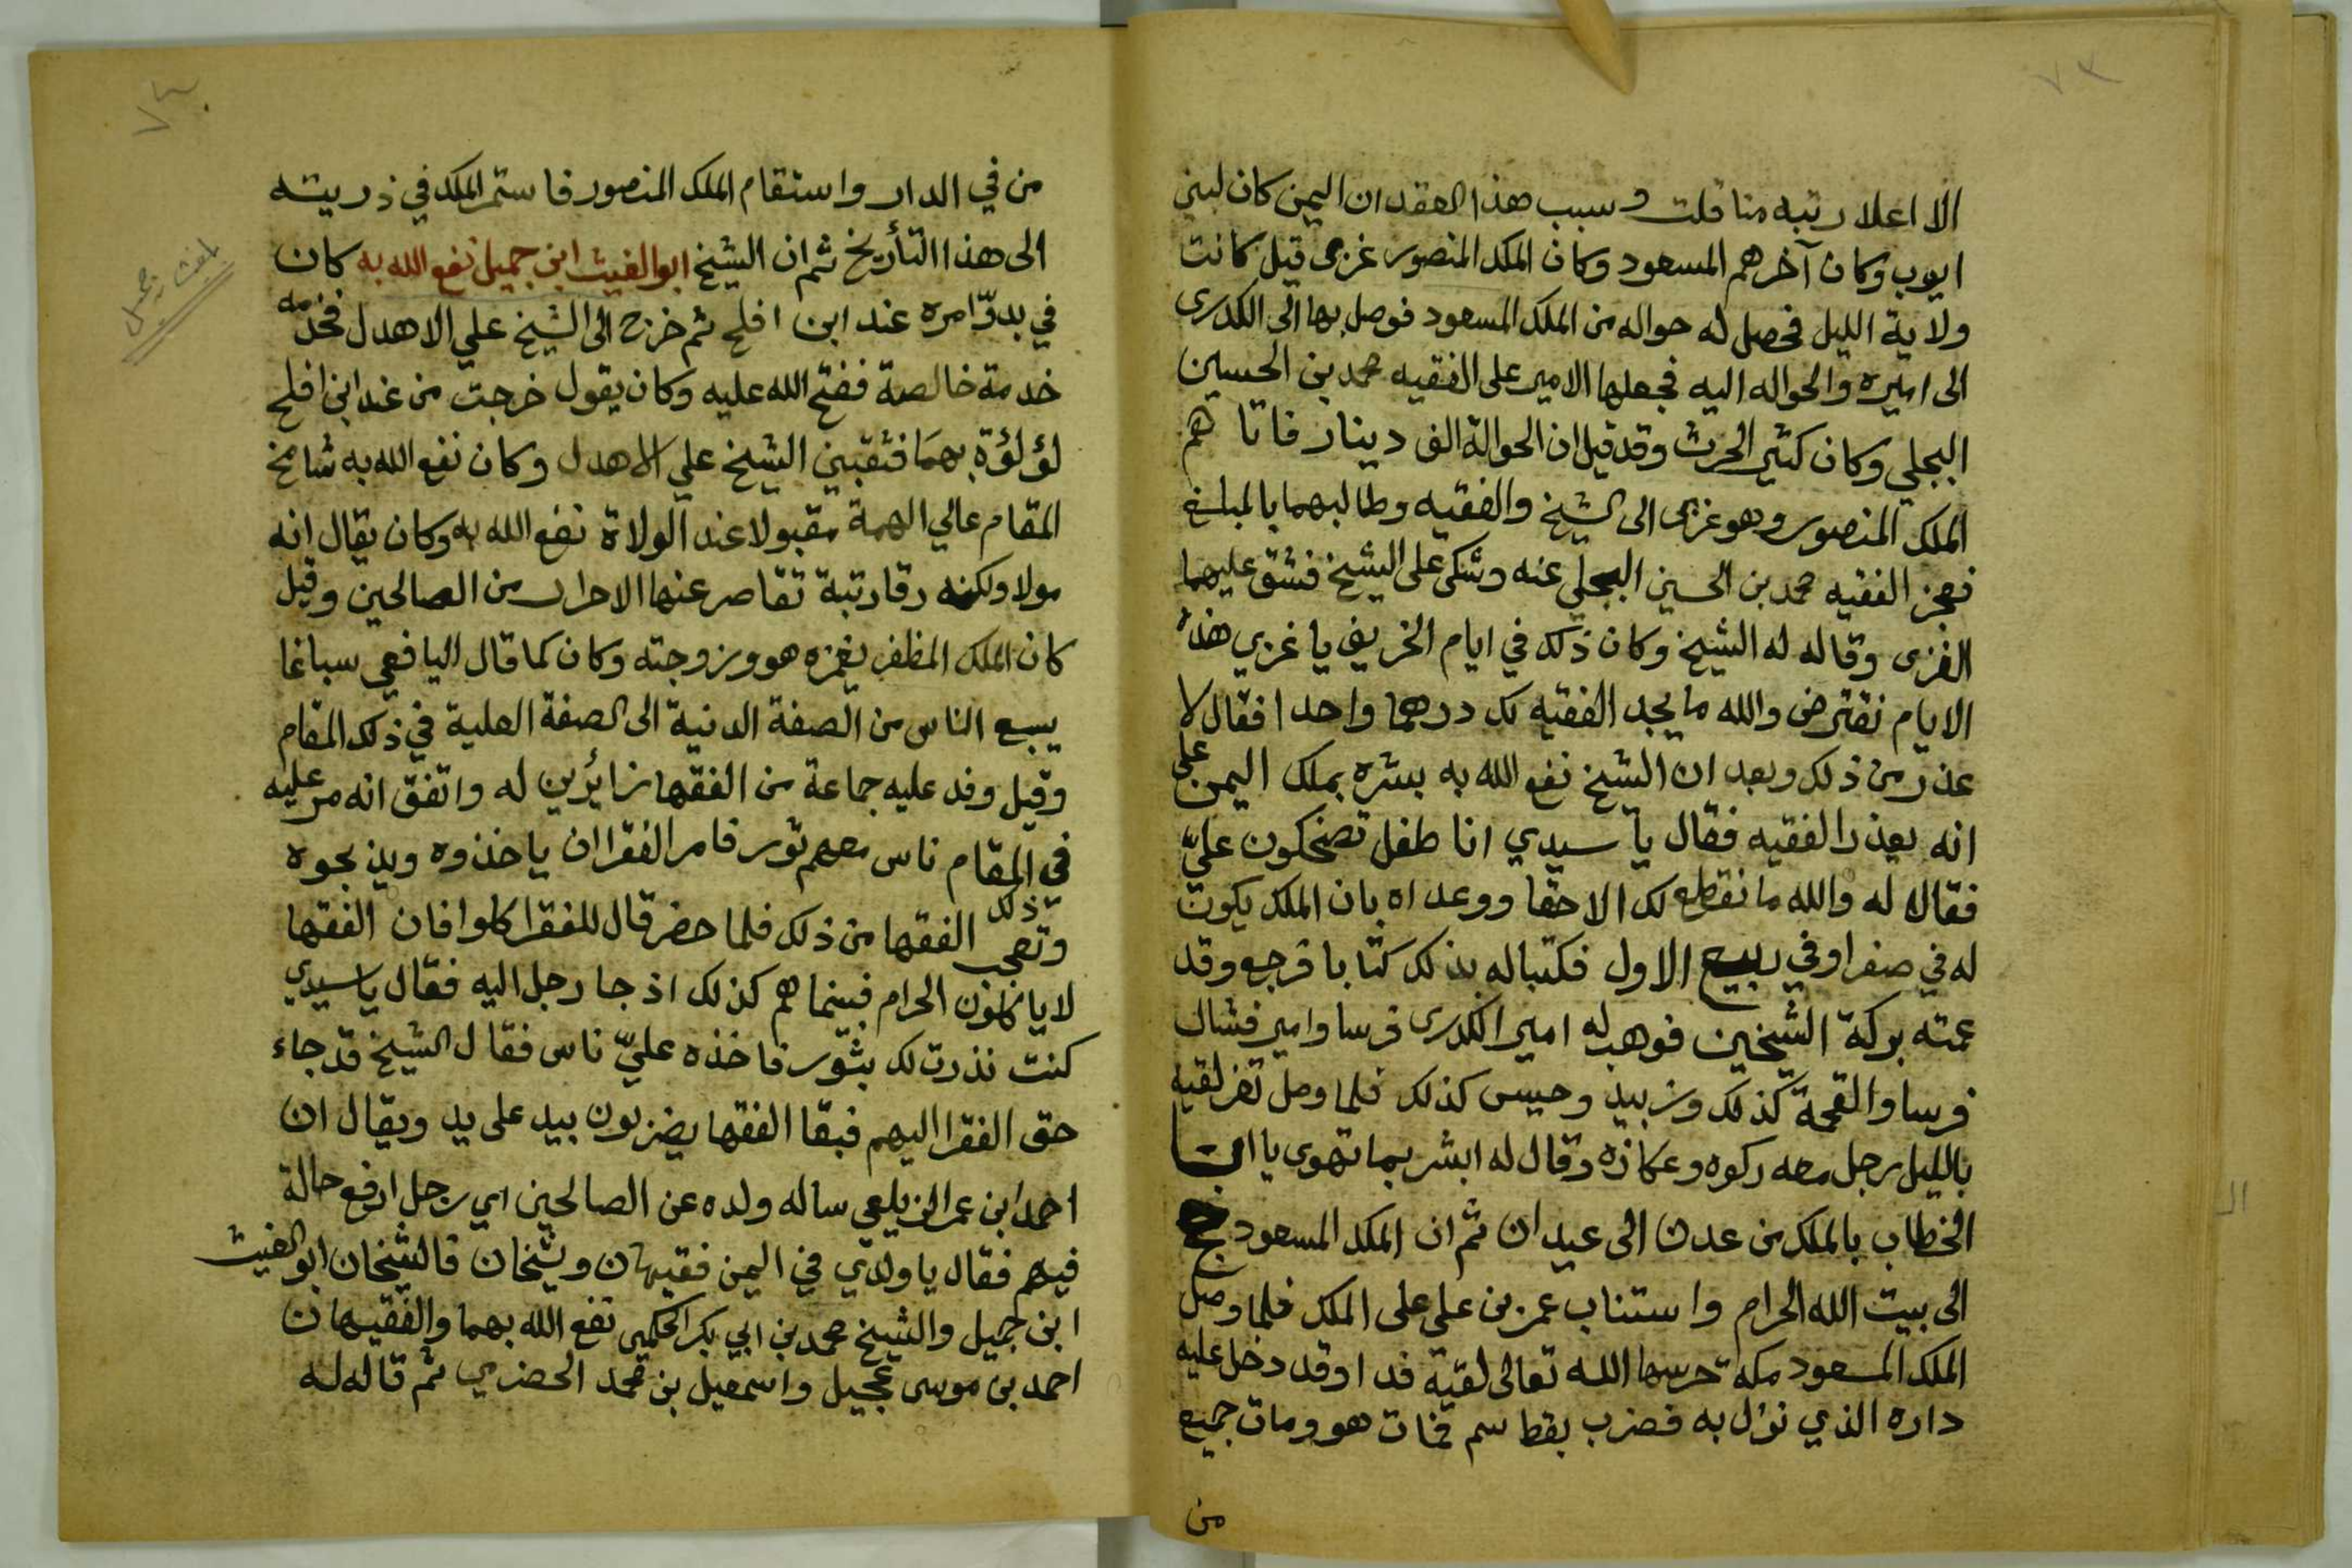 ٧٣
الا اعلا رتبه منا قلت وسبب هذا العقد ان اليمن كان لبني
ايوب وكان آخرهم المسعود وكان الملك المنصور غزى قيل كانت
ولاية الليل فحصل له حواله من الملك المسعود فوصل بها الى الكدرى
الى اميره والحواله اليه فجعلها الامير على الفقيه محمد بن الحسين
البجلي وكان كثير الحرث وقد قيل ان الحوالة الف دينار فاتاهم
الملك المنصور وهو غزى الى الشيخ والفقيه وطالبهما بالمبلغ
فعجز الفقيه محمد بن الحسين البجلي عنه وشكى على الشيخ فشق عليهما
الغزى وقالا له الشيخ وكان ذلك في ايام الخريف يا غزي هذه
الايام نقترض والله ما يجد الفقيه لك درهما واحدا فقال لا
عذر من ذلك وبعد ان الشيخ نفع الله به بشره بملك اليمن على
انه يعذر الفقيه فقال يا سيدي انا طفل تضحكون عليّ
فقالا له والله ما نقطع لك الا حقا ووعداه بان الملك يكون
له في صفر او في ربيع الاول فكتبا له بذلك كتابا فرجع وقد
عمته بركة الشيخين فوهب له امير الكدرى فرسا وامير فشال
فرسا والقحمة كذلك وزبيد وحيس كذلك فلما وصل تعز لقيه
بالليل رجل معه ركوه وعكازه وقال له ابشر بما تهوى يا ابا
الخطاب بالملك من عدن الى عيدان ثم ان الملك المسعود حج
الى بيت الله الحرام واستناب عمر بن علي على الملك فلما وصل
الملك المسعود مكة حرسها الله تعالى لقية فداوقد دخل عليه
داره الذي نزل به فضرب بقط سم فمات هو ومات جميع
من
٧٤
من في الدار واستقام الملك المنصور فاستمر الملك في ذريته
الى هذا التأريخ ثم ان الشيخ ابوالغيث ابن جميل نفع الله به كان
في بدوّ امره عند ابن افلح ثم خرج الى الشيخ علي الاهدل فخدمه
خدمة خالصة ففتح الله عليه وكان يقول خرجت من عند ابن افلح
لؤلؤة بهما فثقبني الشيخ علي الاهدل وكان نفع الله به شامخ
المقام عالي الهمة مقبولا عند الولاة نفع الله به وكان يقال انه
مولا ولكنه رقا رتبة تقاصر عنها الاحرار من الصالحين وقيل
كان الملك المظفر يغمزه هو وزوجته وكان كما قال اليافعي سباغا
يسبع الناس من الصفة الدنية الى الصفة العلية في ذلك المقام
وقيل وفد عليه جماعة من الفقها زائرين له واتفق انه مر عليه
في ذلك المقام ناس معهم ثور فامر الفقرا ان ياخذوه ويذبحوه
وتعجب الفقها من ذلك فلما حضر قال للفقرا كلوا فان الفقها
لا ياكلون الحرام فبينما هم كذلك اذ جا رجل اليه فقال يا سيدي
كنت نذرت لك بثور فاخذه عليّ ناس فقال الشيخ قد جاء
حق الفقرا اليهم فبقا الفقها يضربون بيد على يد ويقال ان
احمد ابن عمر الزيلعي ساله ولده عن الصالحين اي رجل ارفع حالة
فيهم فقال يا ولدي في اليمن فقيهان وشيخان فالشيخان ابوالغيث
ابن جميل والشيخ محمد بن ابي بكر الحكمي نفع الله بهما والفقيهان
احمد بن موسى عجيل واسمعيل بن محمد الحضرمي ثم قال له